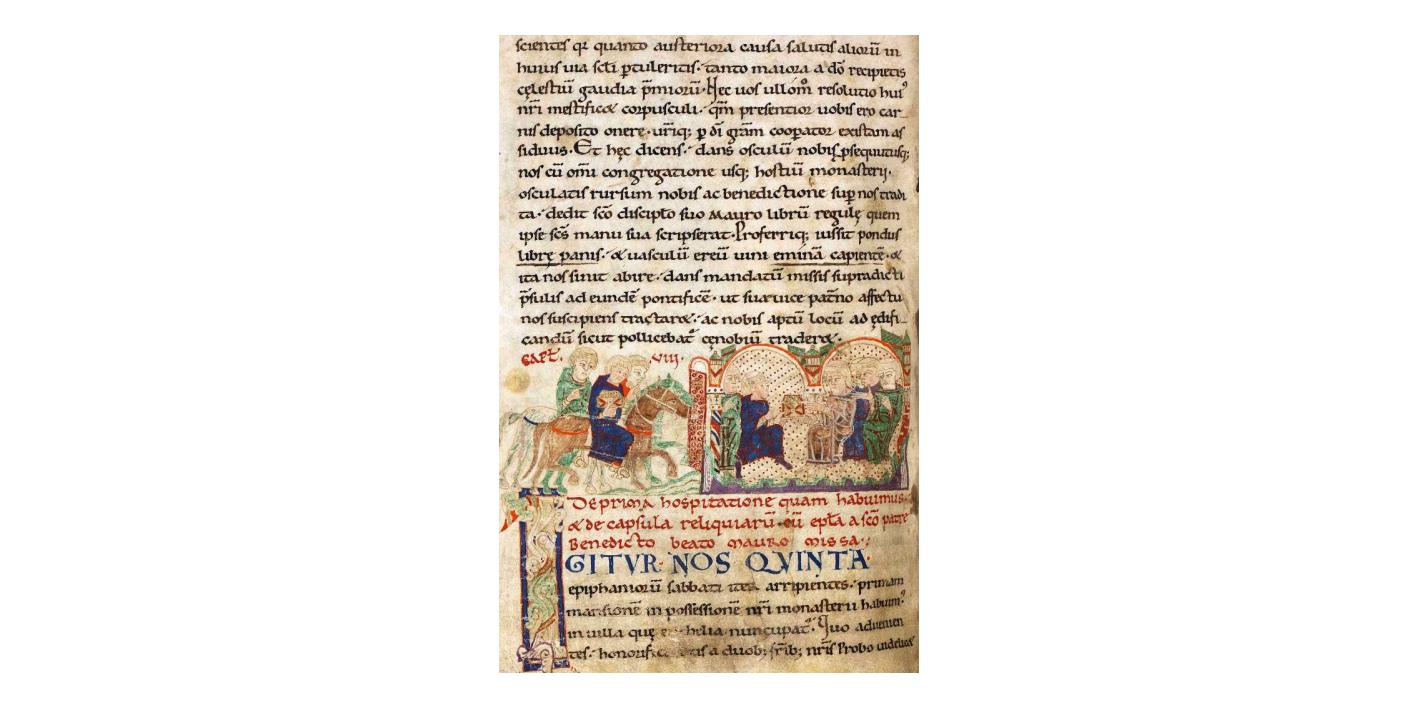 scientes qr quanto austeriora causa salutis alioru̅ in
huius uia sc̅i ꝑtuleritis· tanto maiora a dō recipietis
cęlestiu̅ gaudia p̅mioru̅· Hec uos ullom̅ resolutio hui᾽
nr̅i mestificæ corpusculi· qm̅ presentior uobis ero car-
nis deposito onere· ur̅iq; ꝑ dī gr̅am cooꝑator existam as
siduus· Et hęc dicens· dans osculu̅ nobis ꝓsequutusq;
nos cu̅ om̅i congregatione usq; hostiu̅ monasterij·
osculatis rursum nobis ac benedictione suꝑ nos tradi
ta· dedit sc̅o discipl̅o suo Mauro libru̅ regulę quem
ipse sc̅s manu sua scripserat· Proferriq; iussit pondus
librę panis· & uasculu̅ ereu̅ uini emina̅ capiente̅· &
ita nos sinit abire· dans mandatu̅ missis supradicti
p̅sulis ad eunde̅ pontifice̅· ut sua uice pat̅no affectu
nos suscipiens tractaræ· ac nobis aptu̅ locu̅ ad ędifi-
candu̅ sicut pollicebat᾽ cęnobiu̅ traderæ·
CAPT̅. VIII.
De prima hospitatione quam habuimus.
& de capsula reliquiaru̅ cu̅ epl̅a a sc̅o patre
Benedicto beato Mauro missa.
IGITVR NOS QVINTA
epiphanioru̅ sabbati iter arripientes· primam
mansione̅ in possessione nr̅i monasterii habuim᾽
in uilla quę helia nuncupat᾽. Quo aduenien
tes· honorific a duob; fr̅ib; nr̅is Probo